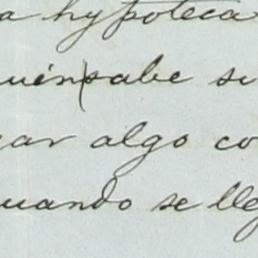 a hypoteca
uién sabe si
ar algo co
uando se lle